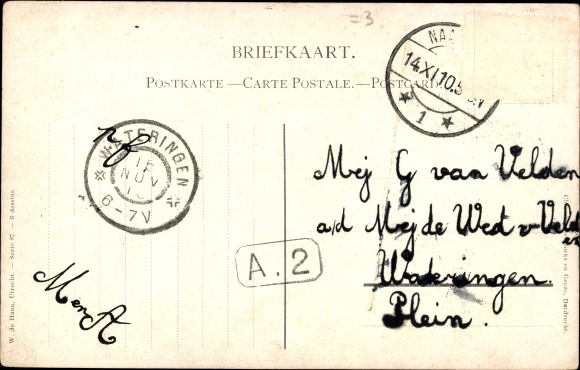 =3
BRIEFKAART.
POSTKARTE — CARTE POSTALE. — POSTCARD
NAA
14.XI.10.5
1
WATERINGEN
15
NOV
10
6-7V
Mej G van Velden
a/d Mej de Wed v Velden
Wateringen.
Plein.
A.2
M en A
W. de Haan, Utrecht. — Serie 87. — 6 dessins.